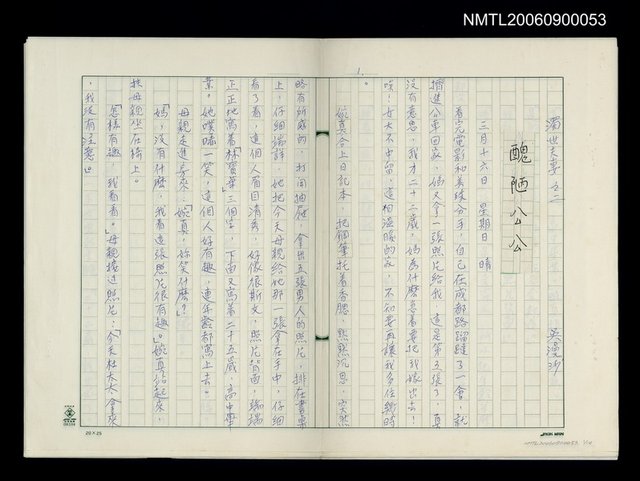 NMTL20060900053
1.
濁世夫妻之二
醜陋公公
吳漫沙
三月十六日 星期日 晴
看完電影和美珠分手,自己在成都路蹓躂了一會,就
擠進公車回家,媽又拿一張照片給我,這是第五張了,真
沒有意思,我才二十二歲,媽為什麼急着要把我嫁出去!
唉!女大不中留,這相溫暖的家,不知要再讓我多住幾時
。
婉真合上日記本,把鋼筆托着香腮,默默沉思,突然
略有所感的,打開抽屜,拿出五張男人的照片,排在書桌
上,仔細端詳,她把今天母親給她那一張拿在手中,仔細
看了看,這個人眉目清秀,好像很斯文,照片背面,端端
正正地寫着「林寶華」三個字,下面又寫着二十五歲,高中畢
業。她噗嗤一笑,這個人好有趣,連年齡都寫上去。
母親走進房來:「婉真,妳笑什麼?」
「媽,沒有什麼,我看這張照片很有趣。」婉真站起來,
扶母親坐在椅上。
「怎樣有趣,我看看。」母親接過照片,「今天杜太太拿來
,我沒有注意。」
20×25
NMTL20060900053 1/10